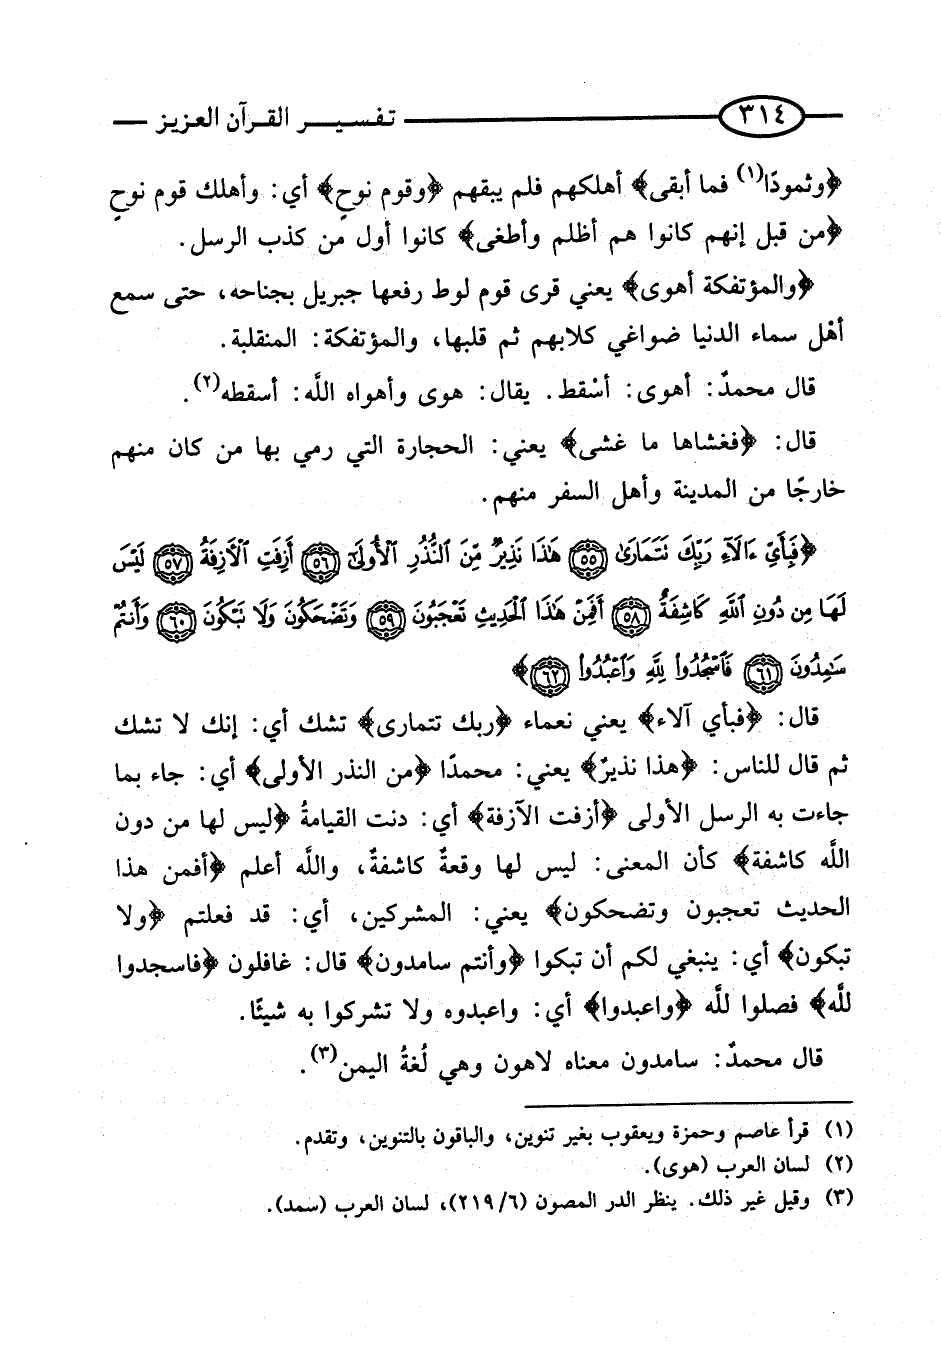 ٣١٤ تفسير القرآن العزيز
﴿وثمودًا(١) فما أبقى﴾ أهلكهم فلم يبقهم ﴿وقوم نوحٍ﴾ أي: وأهلك قوم نوحٍ
﴿من قبل إنهم كانوا هم أظلم وأطغى﴾ كانوا أول من كذب الرسل.
﴿والمؤتفكة أهوى﴾ يعني قرى قوم لوط رفعها جبريل بجناحه، حتى سمع
أهْل سماء الدنيا ضواغي كلابهم ثم قلبها، والمؤتفكة: المنقلبة.
قال محمدٌ: أهوى: أسْقط. يقال: هوى وأهواه اللَّه: أسقطه(٢).
قال: ﴿فغشاها ما غشى﴾ يعني: الحجارة التي رمي بها من كان منهم
خارجًا من المدينة وأهل السفر منهم.
﴿فَبِأَيِّ ءَالَآءِ رَبِّكَ نَتَمَارَىٰ ٥٥ هَٰذَا نَذِيرٌ مِّنَ ٱلنُّذُرِ ٱلْأُولَىٰٓ ٥٦ أَزِفَتِ ٱلْآزِفَةُ ٥٧ لَيْسَ
لَهَا مِن دُونِ ٱللَّهِ كَاشِفَةٌ ٥٨ أَفَمِنْ هَٰذَا ٱلْحَدِيثِ تَعْجَبُونَ ٥٩ وَتَضْحَكُونَ وَلَا تَبْكُونَ ٦٠ وَأَنتُمْ
سَٰمِدُونَ ٦١ فَٱسْجُدُوا۟ لِلَّهِ وَٱعْبُدُوا۟ ٦٢﴾
قال: ﴿فبأي آلاء﴾ يعني نعماء ﴿ربك تتمارى﴾ تشك أي: إنك لا تشك
ثم قال للناس: ﴿هذا نذيرٌ﴾ يعني: محمدًا ﴿من النذر الأولى﴾ أي: جاء بما
جاءت به الرسل الأولى ﴿أزفت الآزفة﴾ أي: دنت القيامةُ ﴿ليس لها من دون
اللَّه كاشفة﴾ كأن المعنى: ليس لها وقعةٌ كاشفةٌ، واللَّه أعلم ﴿أفمن هذا
الحديث تعجبون وتضحكون﴾ يعني: المشركين، أي: قد فعلتم ﴿ولا
تبكون﴾ أي: ينبغي لكم أن تبكوا ﴿وأنتم سامدون﴾ قال: غافلون ﴿فاسجدوا
للَّه﴾ فصلوا للَّه ﴿واعبدوا﴾ أي: واعبدوه ولا تشركوا به شيئًا.
قال محمدٌ: سامدون معناه لاهون وهي لُغةُ اليمن(٣).
(١) قرأ عاصم وحمزة ويعقوب بغير تنوين، والباقون بالتنوين، وتقدم.
(٢) لسان العرب (هوى).
(٣) وقيل غير ذلك. ينظر الدر المصون (٢١٩/٦)، لسان العرب (سمد).